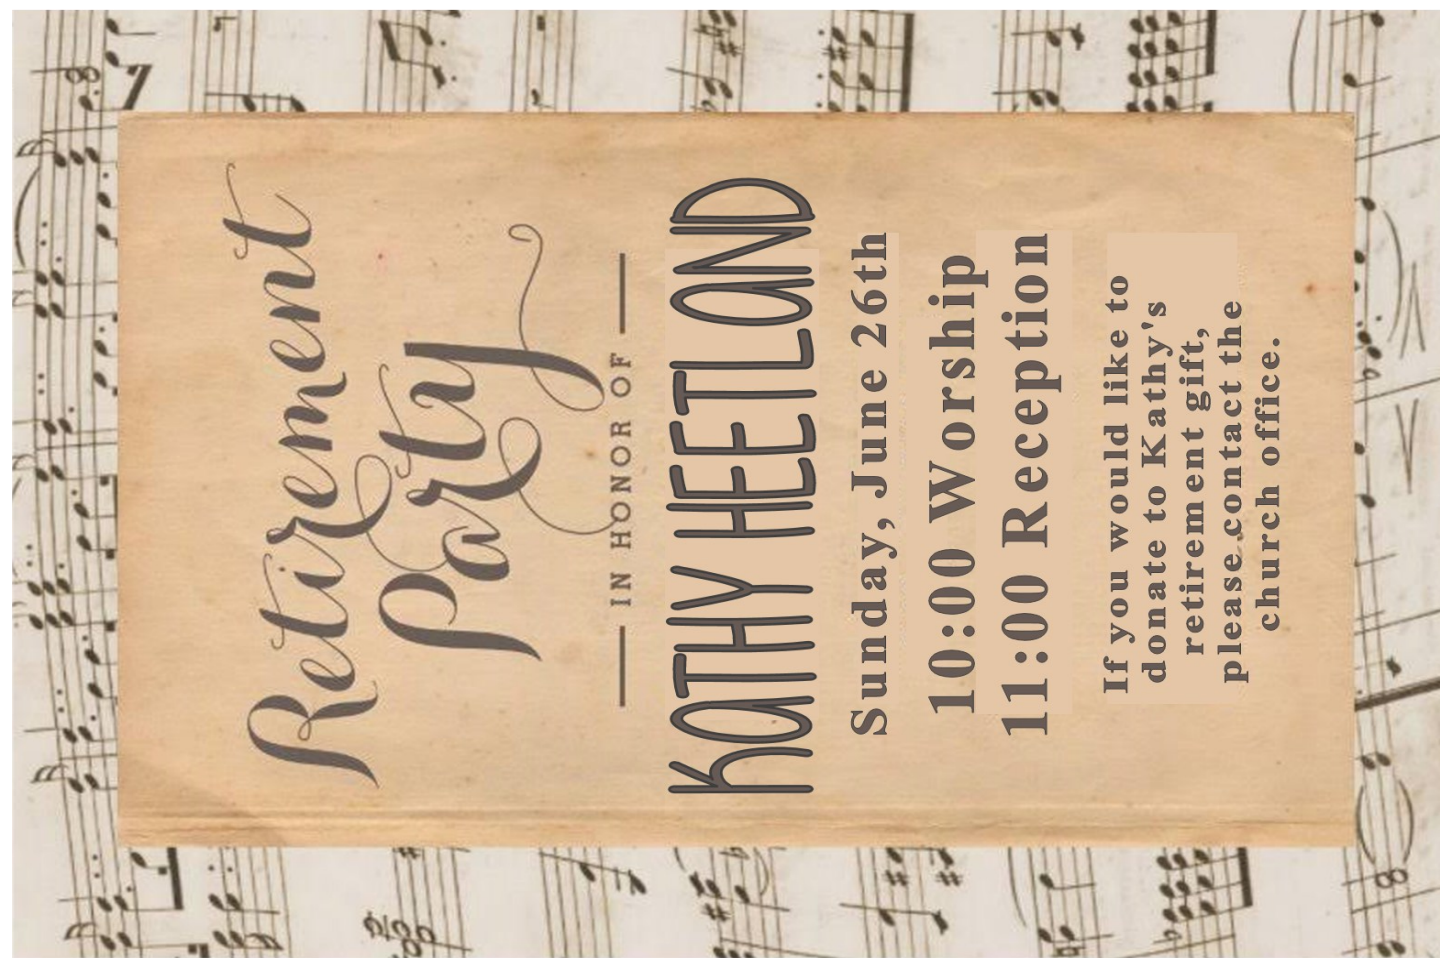 Retirement
Party
IN HONOR OF
KATHY HEETLAND
Sunday, June 26th
10:00 Worship
11:00 Reception
If you would like to
donate to Kathy's
retirement gift,
please contact the
church office.